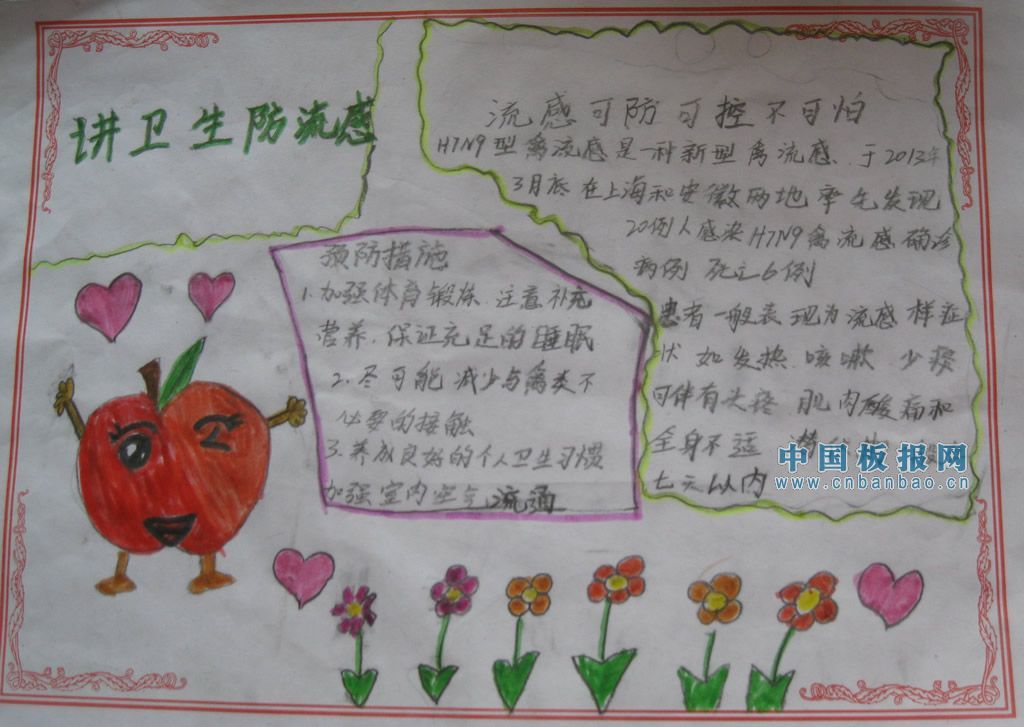 讲卫生防流感
流感可防可控不可怕
H7N9型禽流感是一种新型禽流感、于2013年
3月底在上海和安徽两地率先发现
20例人感染H7N9禽流感确诊
病例 死亡6例
患者一般表现为流感样症
状 如发热.咳嗽.少痰
可伴有头疼.肌肉酸痛和
全身不适
七天以内
预防措施
1.加强体育锻炼.注意补充
营养.保证充足的睡眠
2.尽可能减少与禽类不
必要的接触
3.养成良好的个人卫生习惯
加强室内空气流通
中国板报网
www.cnbanbao.cn